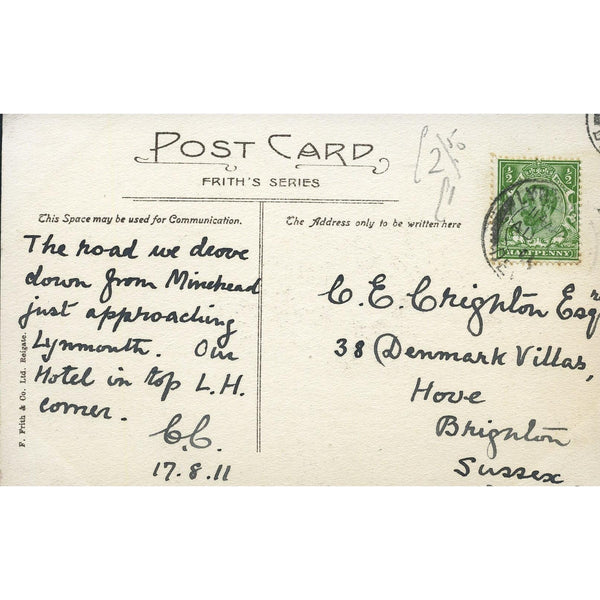 POST CARD
FRITH'S SERIES
This Space may be used for Communication.
The Address only to be written here
The road we drove
down from Minehead
just approaching
Lynmouth. Our
Hotel in top L.H.
corner.
C.C.
17.8.11
C. E. Crighton Esqre
38 Denmark Villas,
Hove
Brighton
Sussex
F. Frith & Co. Ltd. Reigate.
1/2
1/2
HALFPENNY
LYN